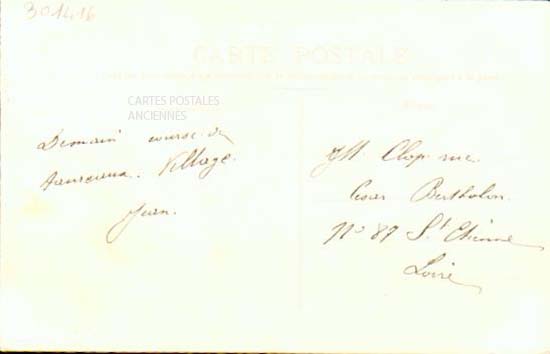 301416
CARTE POSTALE
CARTES POSTALES
ANCIENNES
Demain course de
Taureaux. Village.
Jean.
Clap. rue
César Bertholon.
No 87 St Etienne
Loire